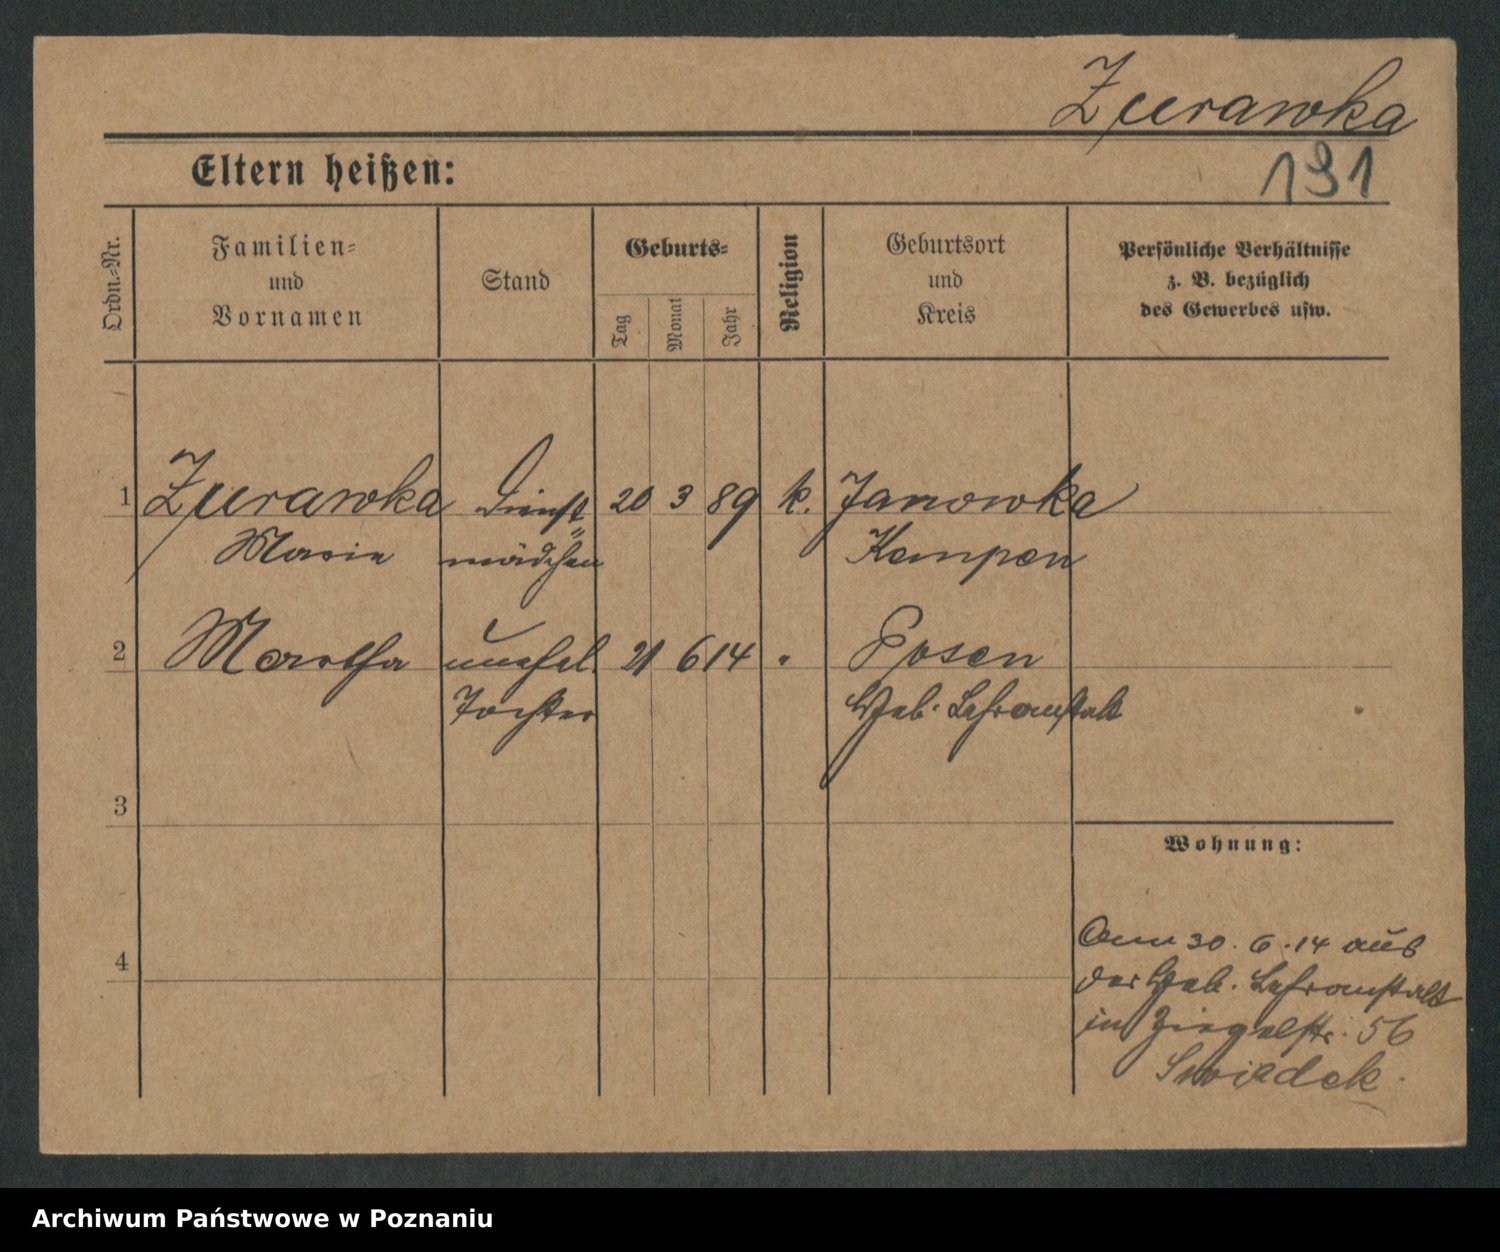 Zurawka
191
Eltern heißen:
Ordn.=Nr.
Familien=
und
Vornamen
Stand
Geburts=
Tag
Monat
Jahr
Religion
Geburtsort
und
Kreis
Persönliche Verhältnisse
z. B. bezüglich
des Gewerbes usw.
1 Zurawka Dienst 20 3 89 k. Janowka
Marie mädchen Kempen
2 Martha unehel. 21 6 14 " Posen
Tochter Heb. Lehranstalt
3
Wohnung:
4
30.6.14 aus
der Heb. Lehranstalt
in Ziegelstr. 56
Swiadek.
Archiwum Państwowe w Poznaniu